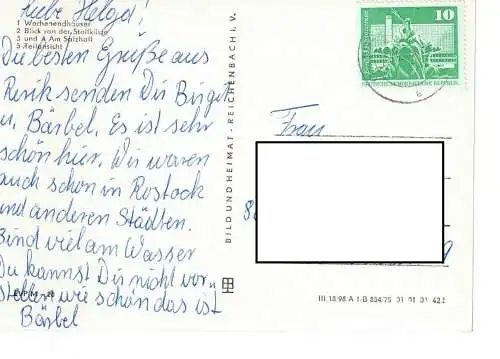 Liebe Helga!
1 Wochenendhäuser
2 Blick von der Steilküste
3 und 4 Am Salzhaff
5 Teilansicht
Die besten Grüße aus
Rerik senden Dir Birger
u. Bärbel. Es ist sehr
schön hier. Wir waren
auch schon in Rostock
und anderen Städten.
Sind viel am Wasser
Du kannst Dir nicht vor-
stellen wie schön das ist
Bärbel
EVP M
BILD UND HEIMAT · REICHENBACH I. V.
10
DEUTSCHE DEMOKRATISCHE REPUBLIK
Frau
III 18 98 A 1/B 854/75 01 01 01 42